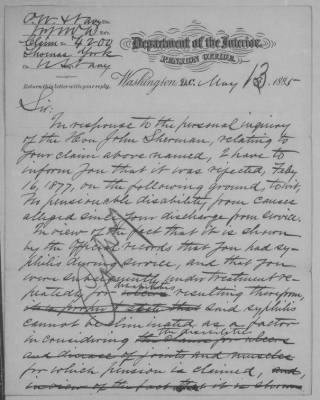 O. W. & Navy
Claim 4200
Thomas York
U.S. Navy
Department of the Interior,
PENSION OFFICE,
Return this letter with your reply.
Washington, D.C. May 13, 1885
Sir:
In response to the personal inquiry
of the Hon John Sherman, relating to
your claim above named, I have to
inform you that it was rejected, Feby
16, 1877, on the following ground, to wit,
No pensionable disability, from causes
alleged since your discharge from service.
In view of the fact that it is shown
by the official records that you had sy-
philis during service, and that you
were subsequently under treatment re-
peatedly for disabilities
ulcers resulting therefrom,
said syphilis
cannot be eliminated as a factor
in considering the disabilities
the claim for ulcers
and disease of joints and muscles
for which pension is claimed, and,
in view of the fact that it is shown